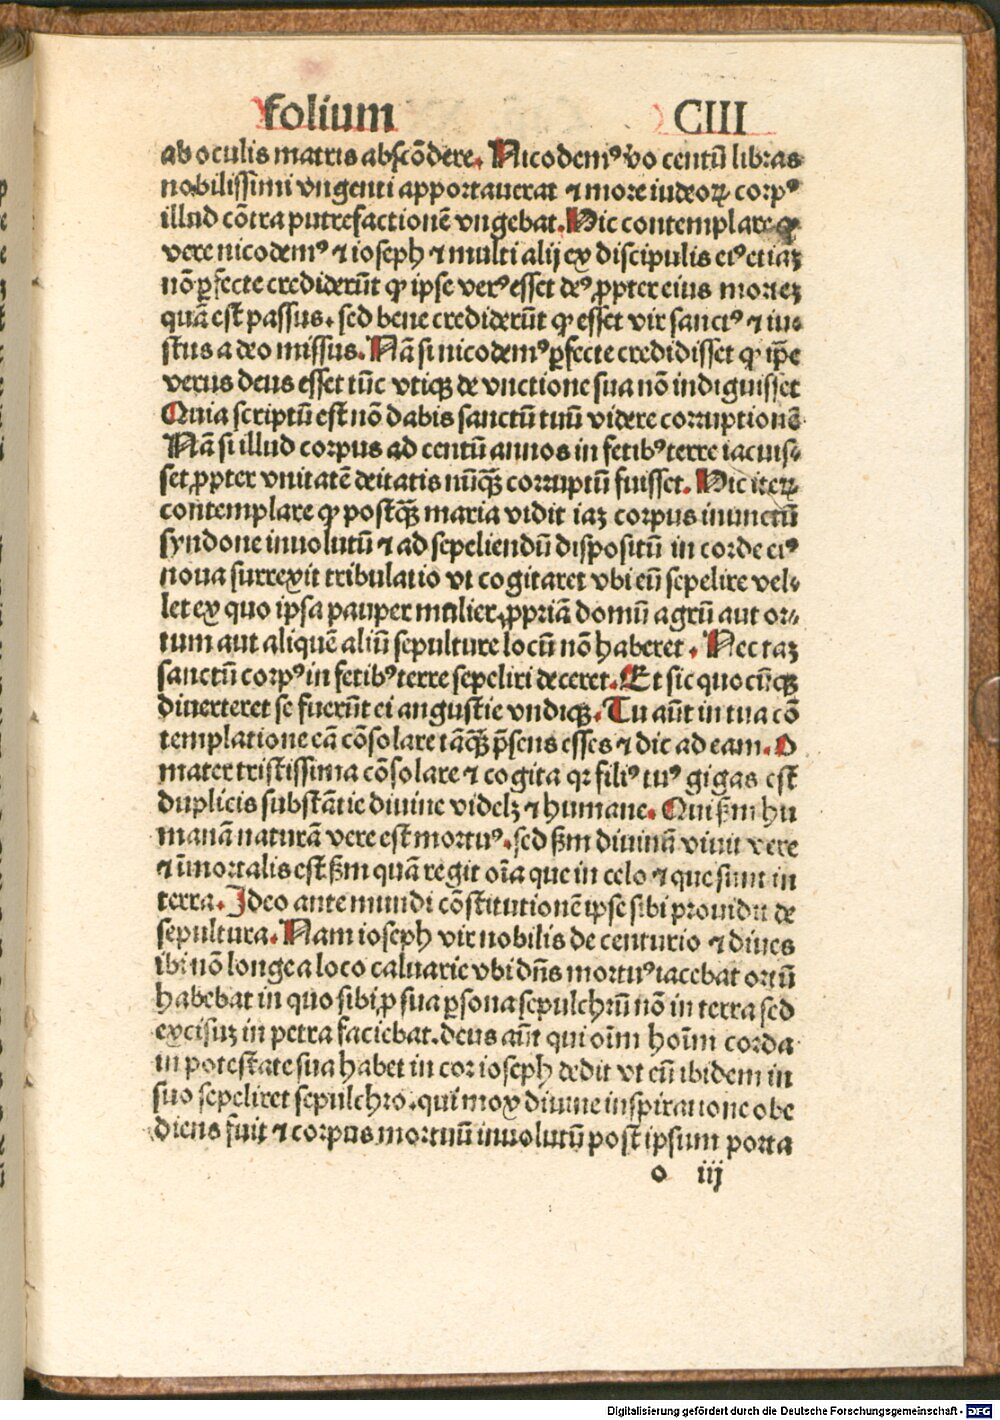 folium CIII
ab oculis matris abscōdere. Nicodemꝰ vo centū libras
nobilissimi vngenti apportauerat ⁊ more iudeoꝝ corpꝰ
illud cōtra putrefactionē vngebat. Hic contemplare ꝙ
vere nicodemꝰ ⁊ ioseph ⁊ multi alij ex discipulis eiꝰ etiaꝫ
nō ꝑfecte crediderūt ꝙ ipse verꝰ esset deꝰ ꝓpter eius morteꝫ
quā est passus. sed bene crediderūt ꝙ esset vir sanctꝰ ⁊ iu⸗
stus a deo missus. Nā si nicodemꝰ ꝑfecte credidisset ꝙ ip̄e
verus deus esset tūc vtiqꝫ de vnctione sua nō indiguisset
Quia scriptū est nō dabis sanctū tuū videre corruptionē
Nā si illud corpus ad centū annos in fetibꝰ terre iacuis⸗
set ꝓpter vnitatē deitatis nūq̄ꝫ corruptū fuisset. Hic iteꝝ
contemplare ꝙ postq̄ꝫ maria vidit iaꝫ corpus inunctū
syndone inuolutū ⁊ ad sepeliendū dispositū in corde eiꝰ
noua surrexit tribulatio vt cogitaret vbi eū sepelire vel⸗
let ex quo ipsa pauper mulier ꝓpriā domū agrū aut or⸗
tum aut aliquē aliū sepulture locū nō haberet. Nec taꝫ
sanctū corpꝰ in fetibꝰ terre sepeliri deceret. Et sic quocūqꝫ
diuerteret se fuerūt ei angustie vndiqꝫ. Tu aūt in tua cō
templatione eā cōsolare tāq̄ꝫ p̄sens esses ⁊ dic ad eam. O
mater tristissima cōsolare ⁊ cogita qꝛ filiꝰ tuꝰ gigas est
duplicis substātie diuine videlꝫ ⁊ humane. Qui ẜm hu
manā naturā vere est mortuꝰ. sed ẜm diuinā viuit vere
⁊ īmortalis est ẜm quā regit oīa que in celo ⁊ que sunt in
terra. Ideo ante mundi cōstitutionē ipse sibi prouidit de
sepultura. Nam ioseph vir nobilis de centurio ⁊ diues
ibi nō longe a loco caluarie vbi dn̄s mortuꝰ iacebat ortū
habebat in quo sibi ꝓ sua ꝑsona sepulchrū nō in terra sed
excisuꝫ in petra faciebat. deus aūt qui oīm hoīm corda
in potestate sua habet in cor ioseph dedit vt eū ibidem in
suo sepeliret sepulchro. qui mox diuine inspiratione obe
diens fuit ⁊ corpus mortuū inuolutū post ipsum porta
o iij
Digitalisierung gefördert durch die Deutsche Forschungsgemeinschaft - DFG